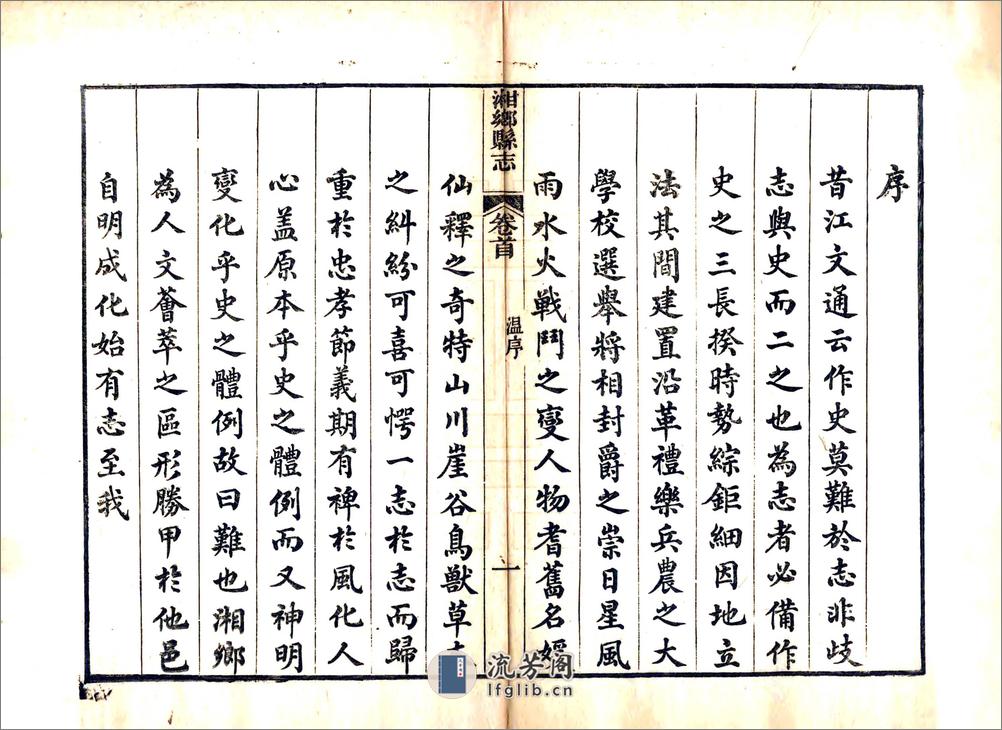 序
昔江文通云作史莫難於志非歧
志與史而二之也為志者必備作
史之三長揆時勢綜鉅細因地立
法其間建置沿革禮樂兵農之大
學校選舉將相封爵之崇日星風
雨水火戰鬥之變人物耆舊名
湘鄉縣志
卷首
溫序
一
仙釋之奇特山川崖谷鳥獸草
之糾紛可喜可愕一志於志而歸
重於忠孝節義期有裨於風化人
心盖原本乎史之體例而又神明
變化乎史之體例故曰難也湘鄉
為人文薈萃之區形勝甲於他邑
自明成化始有志至我
流芳阁
lfglib.cn